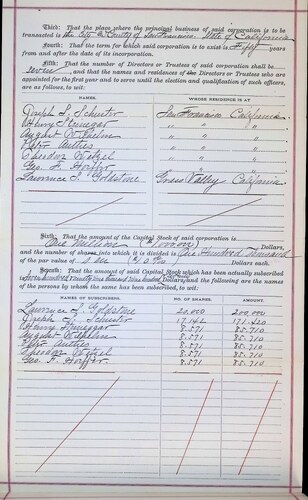 Third: That the place where the principal business of said corporation is to be
transacted is the City & County of San Francisco State of California
Fourth: That the term for which said corporation is to exist is Fifty years
from and after the date of its incorporation.
Fifth: That the number of Directors or Trustees of said corporation shall be
seven, and that the names and residences of the Directors or Trustees who are
appointed for the first year and to serve until the election and qualification of such officers,
are as follows, to wit:
NAMES. WHOSE RESIDENCE IS AT
Joseph L. Schuster San Francisco California
Henry Finnegar " " "
August Wilhelm " " "
Peter " " "
Theodor Wetzel " " "
Geo. F. " " "
Lawrence L. Goldstone Grass Valley California
Sixth: That the amount of the Capital Stock of said corporation is
One Million ($1000000) Dollars,
and the number of shares into which it is divided is One Hundred Thousand
of the par value of Ten ($10.00) Dollars each.
Seventh: That the amount of said Capital Stock which has been actually subscribed
is and the following are the
names of the persons by whom the same has been subscribed, to wit:
NAMES OF SUBSCRIBERS. NO. OF SHARES. AMOUNT.
Lawrence L. Goldstone 20,000 200,000
Joseph L. Schuster 17,142 171,420
Henry Finnegar 8,571 85,710
August Wilhelm 8,571 85,710
Peter 8,571 85,710
Theodor Wetzel 8,571 85,710
Geo. F. 8,571 85,710